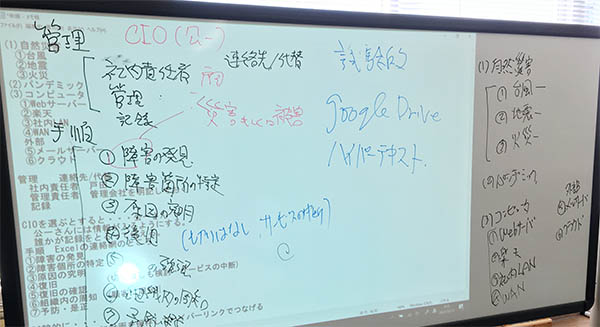 管理
CIO(公一)
連絡先/代替
試験的
社内責任者
管理
記録
災害もしくは被害
Google Drive
ハイパーテキスト.
手順
① 障害の発見
② 障害箇所の特定
③ 原因の究明
④ 復旧
サービスの中断)
(1) 自然災害
① 台風
② 地震
③ 火災
(2) パンデミック
(3) コンピュータ
① Webサーバー
② 楽天
③ 社内LAN
④ WAN
外部
⑤ メールサーバー
⑥ クラウド
管理 連絡先/代
社内責任者 戸田
管理責任者 管理会社を明記し
記録
CIOを選ぶとすると
公一さんには情報
誰かが記録をと
手順 Excelの連絡網の
①障害の発見
②障害個所の特定
③原因の究明
④復旧
⑤復旧の確認
⑥組織内の周知
⑦予防・是正
サービスの中断)
パーリンクでつなげる
(1) 自然災害
① 台風
② 地震
③ 火災
(2) パンデミック
(3) コンピュータ
① Webサーバ
② 楽天
③ 社内LAN
④ WAN
外部
⑤ メールサーバ
⑥ クラウド